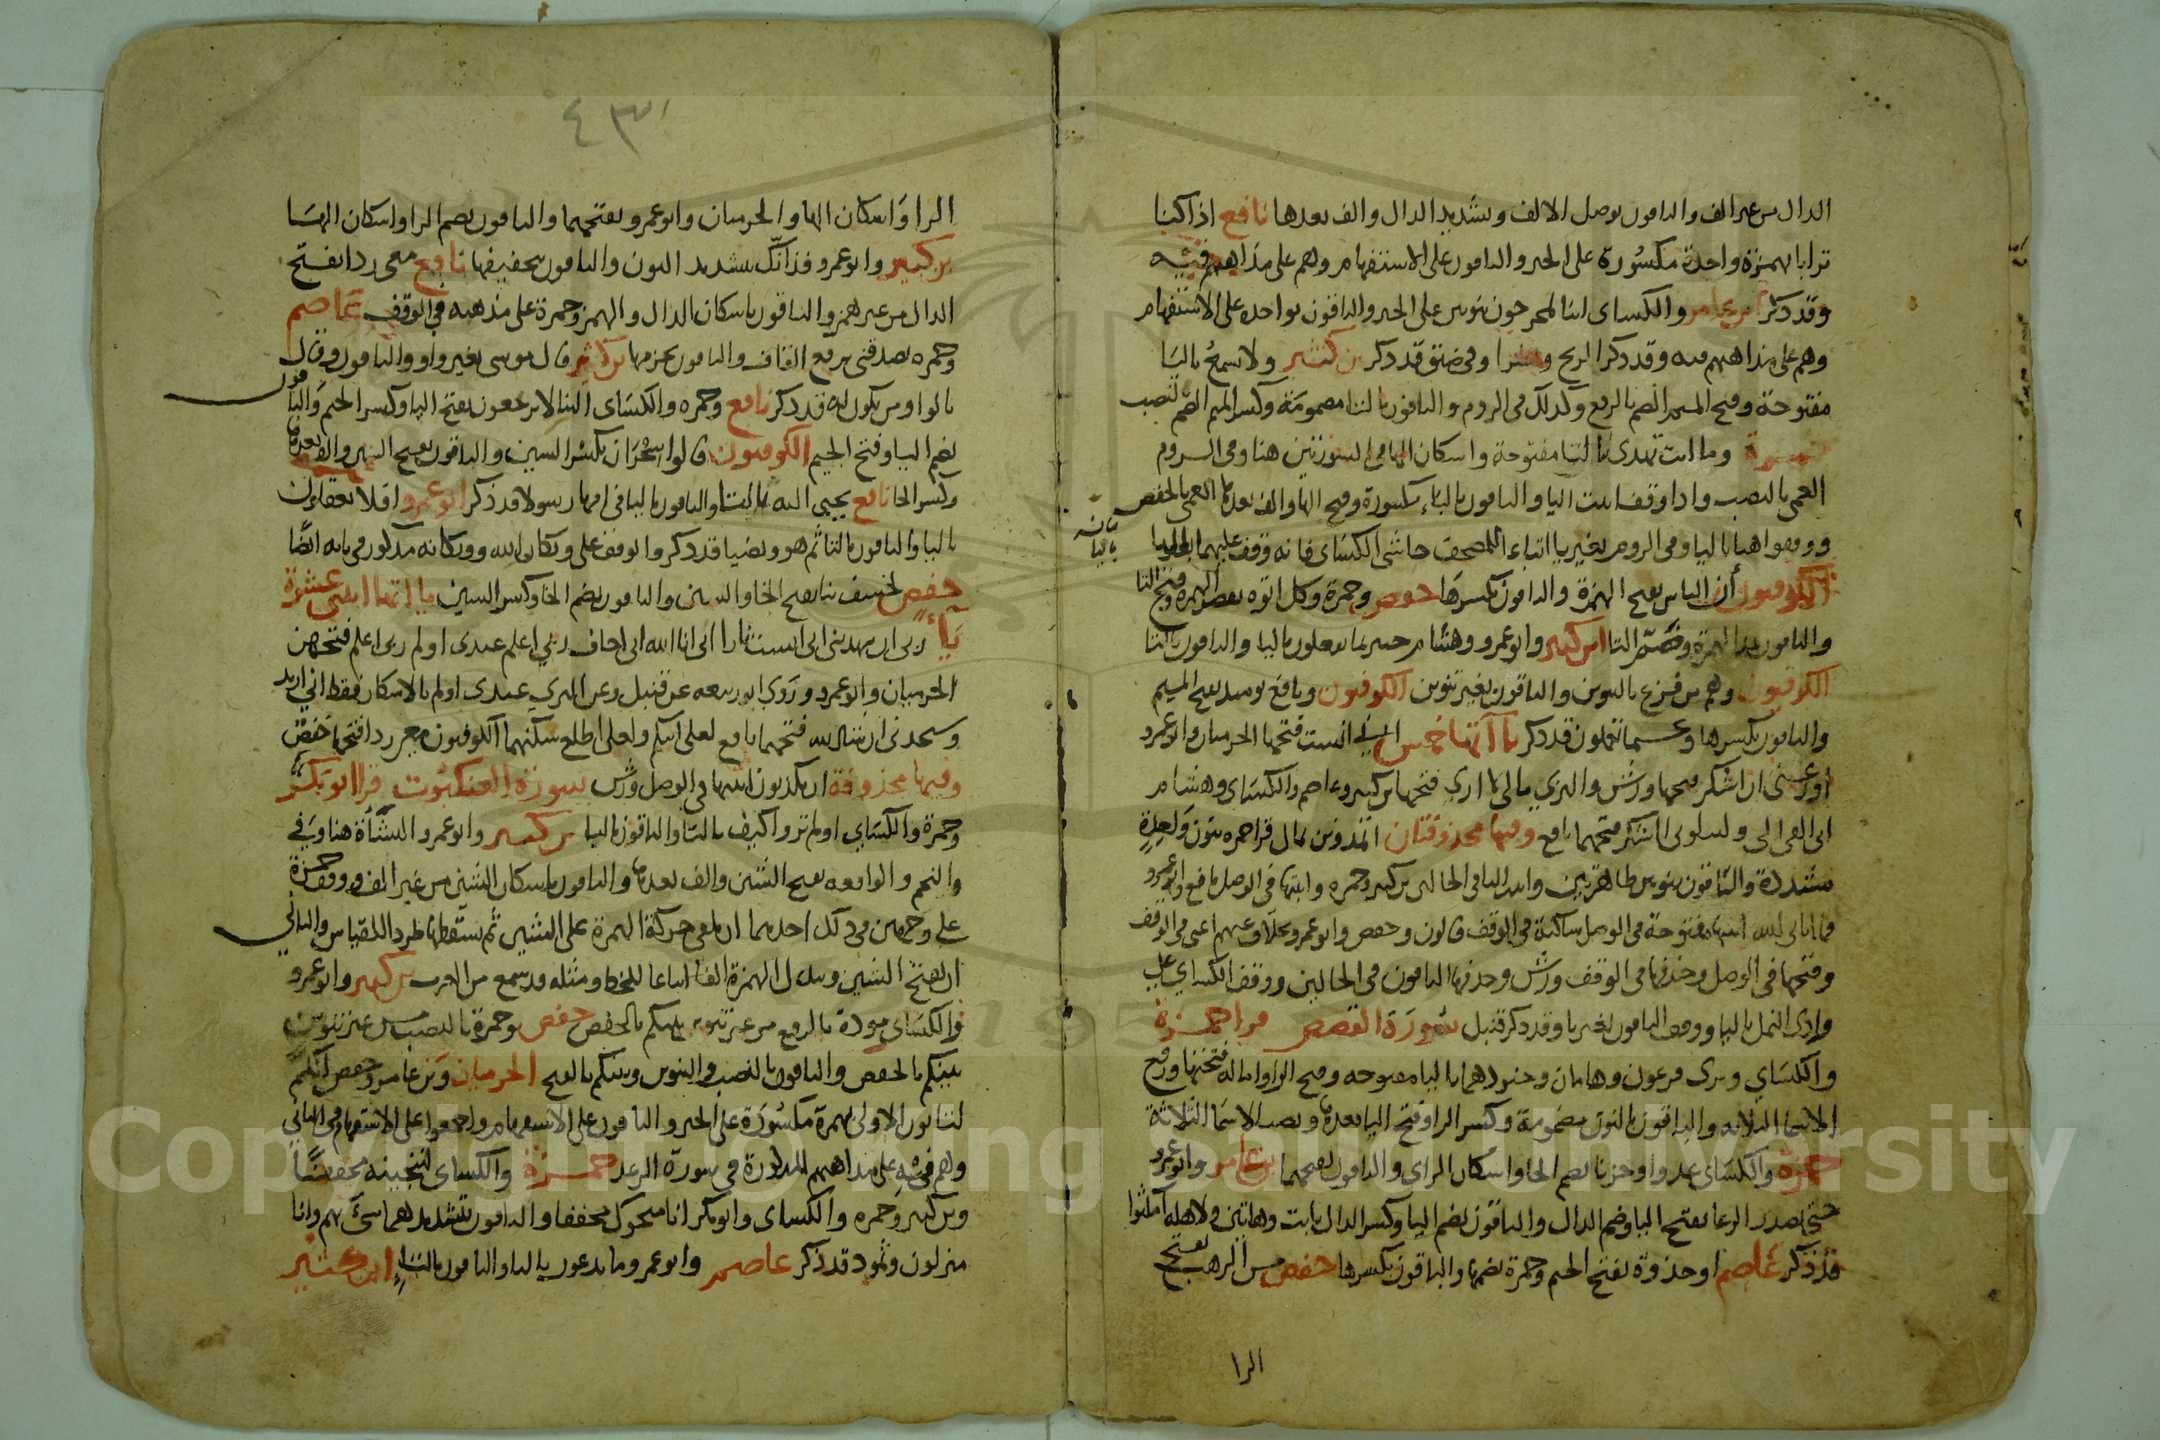 الدال من غير الف والباقون بوصل الالف وتشديد الدال والف بعدها نافع اذا كنا
ترابا بهمزة واحدة مكسورة على الخبر والباقون على الاستفهام وهم على مذاهبهم فيه
وقد ذكر ابن عامر والكساى اننا لمخرجون بنونين على الخبر والباقون بواحدة على الاستفهام
وهم على مذاهبهم فيه وقد ذكر الريح و في ضيق قد ذكر بن كثير ولا يسمع باليا
مفتوحة وفتح الميم الصم بالرفع وكذلك في الروم والباقون بالتا مضمومة وكسر الميم الصم بالنصب
حمزة وما انت تهدى بالتا مفتوحة واسكان الها في السورتين هنا وفي الروم
العمى بالنصب واذا وقف اثبت اليا والباقون بالباء مكسورة وفتح الها والف بعدها العمى بالخفض
ووقفوا هنا باليا وفي الروم بغير يا اتباعا للمصحف حاشى الكساى فانه وقف عليهما باليا
الكوفيون أن الناس بفتح الهمزة والباقون بكسرها حفص وحمزة وكل اتوه بقصر الهمزة وفتح التا
والباقون بمد الهمزة وضم التا ابن كثير وابو عمرو وهشام خبير بما يفعلون باليا والباقون بالتا
الكوفيون وهم من فزع بالتنوين والباقون بغير تنوين الكوفيون ونافع يوميذ بفتح الميم
والباقون بكسرها وعما تعملون قد ذكر يا آتها خمس اني انست فتحها الحرميان وابو عمرو
اوزعنى ان اشكر فتحها ورش والبزي ما لي لا ارى فتحها بن كثير وعاصم والكساى وهشام
انى القى الى وليبلونى ااشكر فتحهما نافع وفيها محذوفتان اتمدونن بمال قرا حمزه بنون واحدة
مشددة والباقون بنونين ظاهرتين واثبت اليا في الحالين بن كثير وحمزه واثبتها في الوصل نافع وابو عمرو
فما اتاني الله اثبتها مفتوحة في الوصل ساكنة في الوقف قالون وحفص وابو عمرو بخلاف عنهم اعنى في الوقف
وفتحها في الوصل وحذفها في الوقف ورش وحذفها الباقون في الحالين ووقف الكساي على
وادى النمل باليا ووقف الباقون بغير يا وقد ذكر قنبل سورة القصص قرا حمزة
والكساي ويرى فرعون وهامان وجنودهما باليا مفتوحه وفتح الراوامالة فتحتها ورفع
الاسما الثلاثه والباقون بالنون مضمومة وكسر الرا وفتح اليا بعدها ونصب الاسما الثلاثة
حمزة والكساى عدوا وحزنا بضم الحا واسكان الزاى والباقون بفتحهما بن عامر وابو عمرو
حتى يصدر الرعا بفتح اليا وضم الدال والباقون بضم اليا وكسر الدال يابت وهاتين ولاهله امكثوا
قد ذكر عاصم او جذوة بفتح الجيم وحمزة بضمها والباقون بكسرها حفص من الرهب بفتح
الرا
٤٣
الرا واسكان الها والحرميان وابو عمرو بفتحهما والباقون بضم الرا واسكان الها
بن كثير وابو عمرو فذانّك بتشديد النون والباقون بتخفيفها نافع معى ردا بفتح
الدال من غير همز والباقون باسكان الدال والهمز وحمزة على مذهبه في الوقف عاصم
وحمزه يصدقنى برفع القاف والباقون بجزمها بن كثير قال موسى بغير واو والباقون وقال
بالواو ومن يكون له قد ذكر نافع وحمزه والكساى الينا لا يرجعون بفتح اليا وكسر الجيم والباقون
بضم اليا وفتح الجيم الكوفيون قالوا سحران بكسر السين والباقون بفتح السين والف بعدها
وكسر الحا نافع يجبى اليه بالتا والباقون باليا في امها رسولا قد ذكر ابو عمرو افلا تعقلون
باليا والباقون بالتا ثم هو وبضيا قد ذكر والوقف على ويكان الله وويكانه مذكور في بابه ايضا
حفص لخسف بنا بفتح الخا والسين والباقون بضم الخا وكسر السين يا اتها اثنى عشرة
يآء ربى ان يهدينى انى انست نارا انى انا الله انى اخاف ربي اعلم عندى اولم ربى اعلم فتحهن
الحرميان وابو عمرو وروى ابو ربيعه عن قنبل وعن البزي عندى اولم بالاسكان فقط اني اريد
وستجدنى ان شاالله فتحهما نافع لعلى آتيكم ولعلى اطلع سكنهما الكوفيون معي ردا فتحها حفص
وفيها محذوفة ان يكذبون اثبتها في الوصل ورش سورة العنكبوت قرا ابو بكر
وحمزة والكساي اولم تروا كيف بالتا والباقون باليا بن كثير وابو عمرو النشأة هنا وفي
والنجم والواقعه بفتح الشين والف بعدها والباقون باسكان الشين من غير الف ووقف حمزة
على وجهين في ذلك احدهما ان يلقى حركة الهمزة على الشين ثم يسقطها طردا للقياس والثاني
ان يفتح الشين ويبدل الهمزة الفا اتباعا للخط ومثله قد سمع من العرب بن كثير وابو عمرو
والكساي مودة بالرفع من غير تنوين بينكم بالخفض حفص وحمزة بالنصب من غير تنوين
بينكم بالخفض والباقون بالنصب والتنوين وبينكم بالفتح الحرميان وبن عامر وحفص انكم
لتاتون الاولى بهمزة مكسورة على الخبر والباقون على الاستفهام واجمعوا على الاستفهام في الثاني
وهم فيه على مذاهبهم المذكورة في سورة الرعد حمزة والكساى لننجينه مخففا
وبن كثير وحمزه والكساى وابو بكر انا منجوك مخففا والباقون بتشديدهما سىء بهم وانا
منزلون وثمود قد ذكر عاصم وابو عمرو وما يدعون باليا والباقون بالتاء ابن كثير